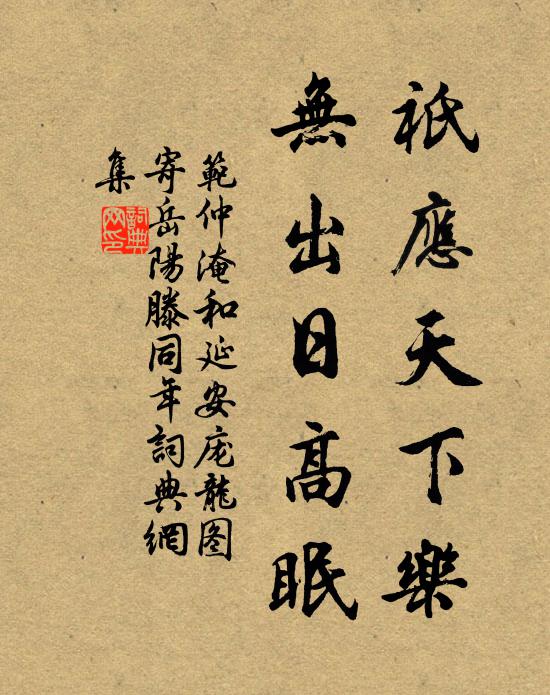 祇應天下樂
無出日高眠
範仲淹和延安庞龍图
寄岳陽滕同年詞典網
集
詞典网印